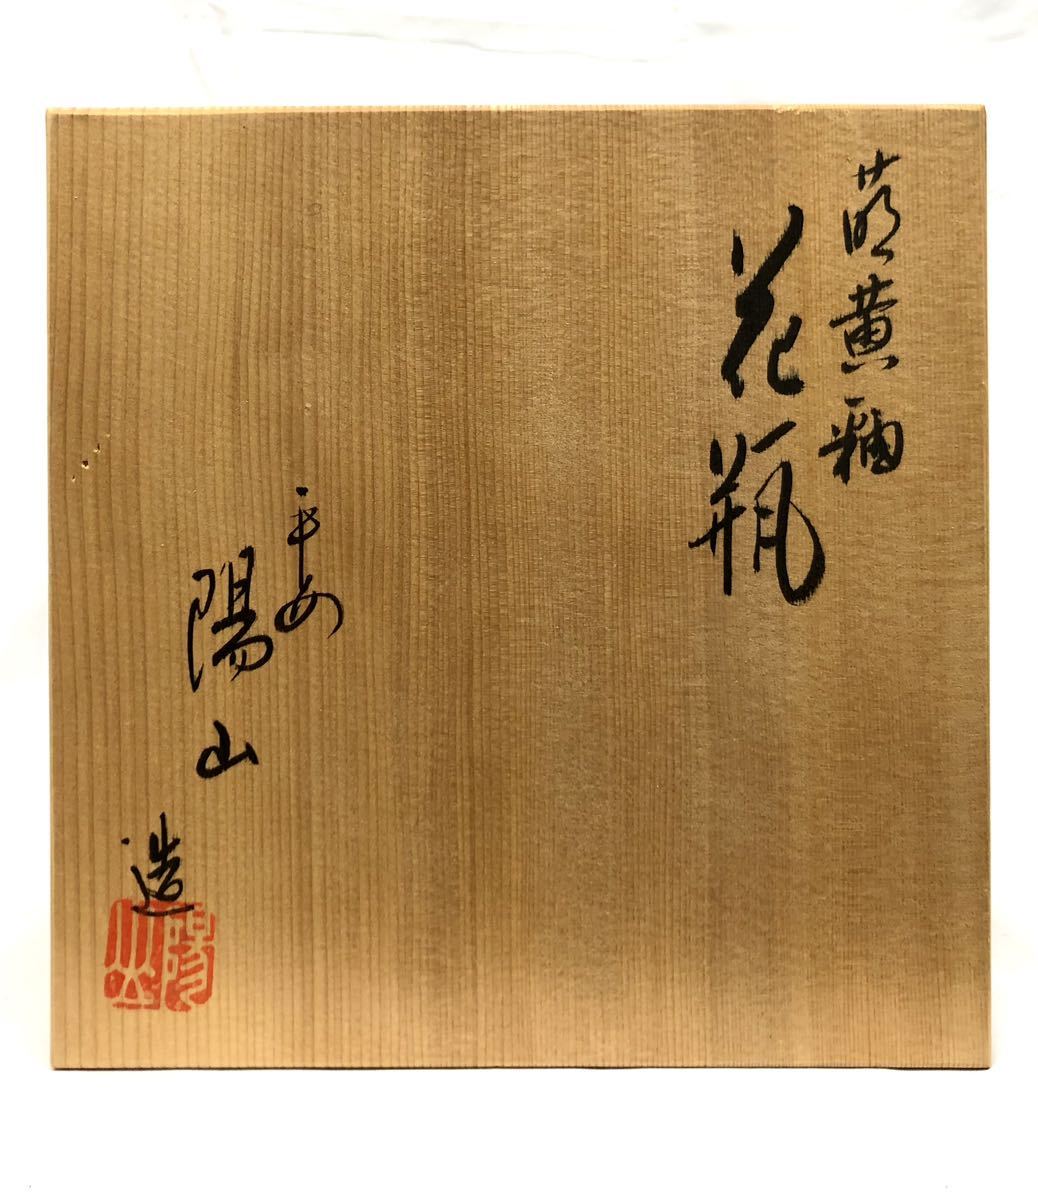 萌黄釉
花瓶
平安
陽山
造